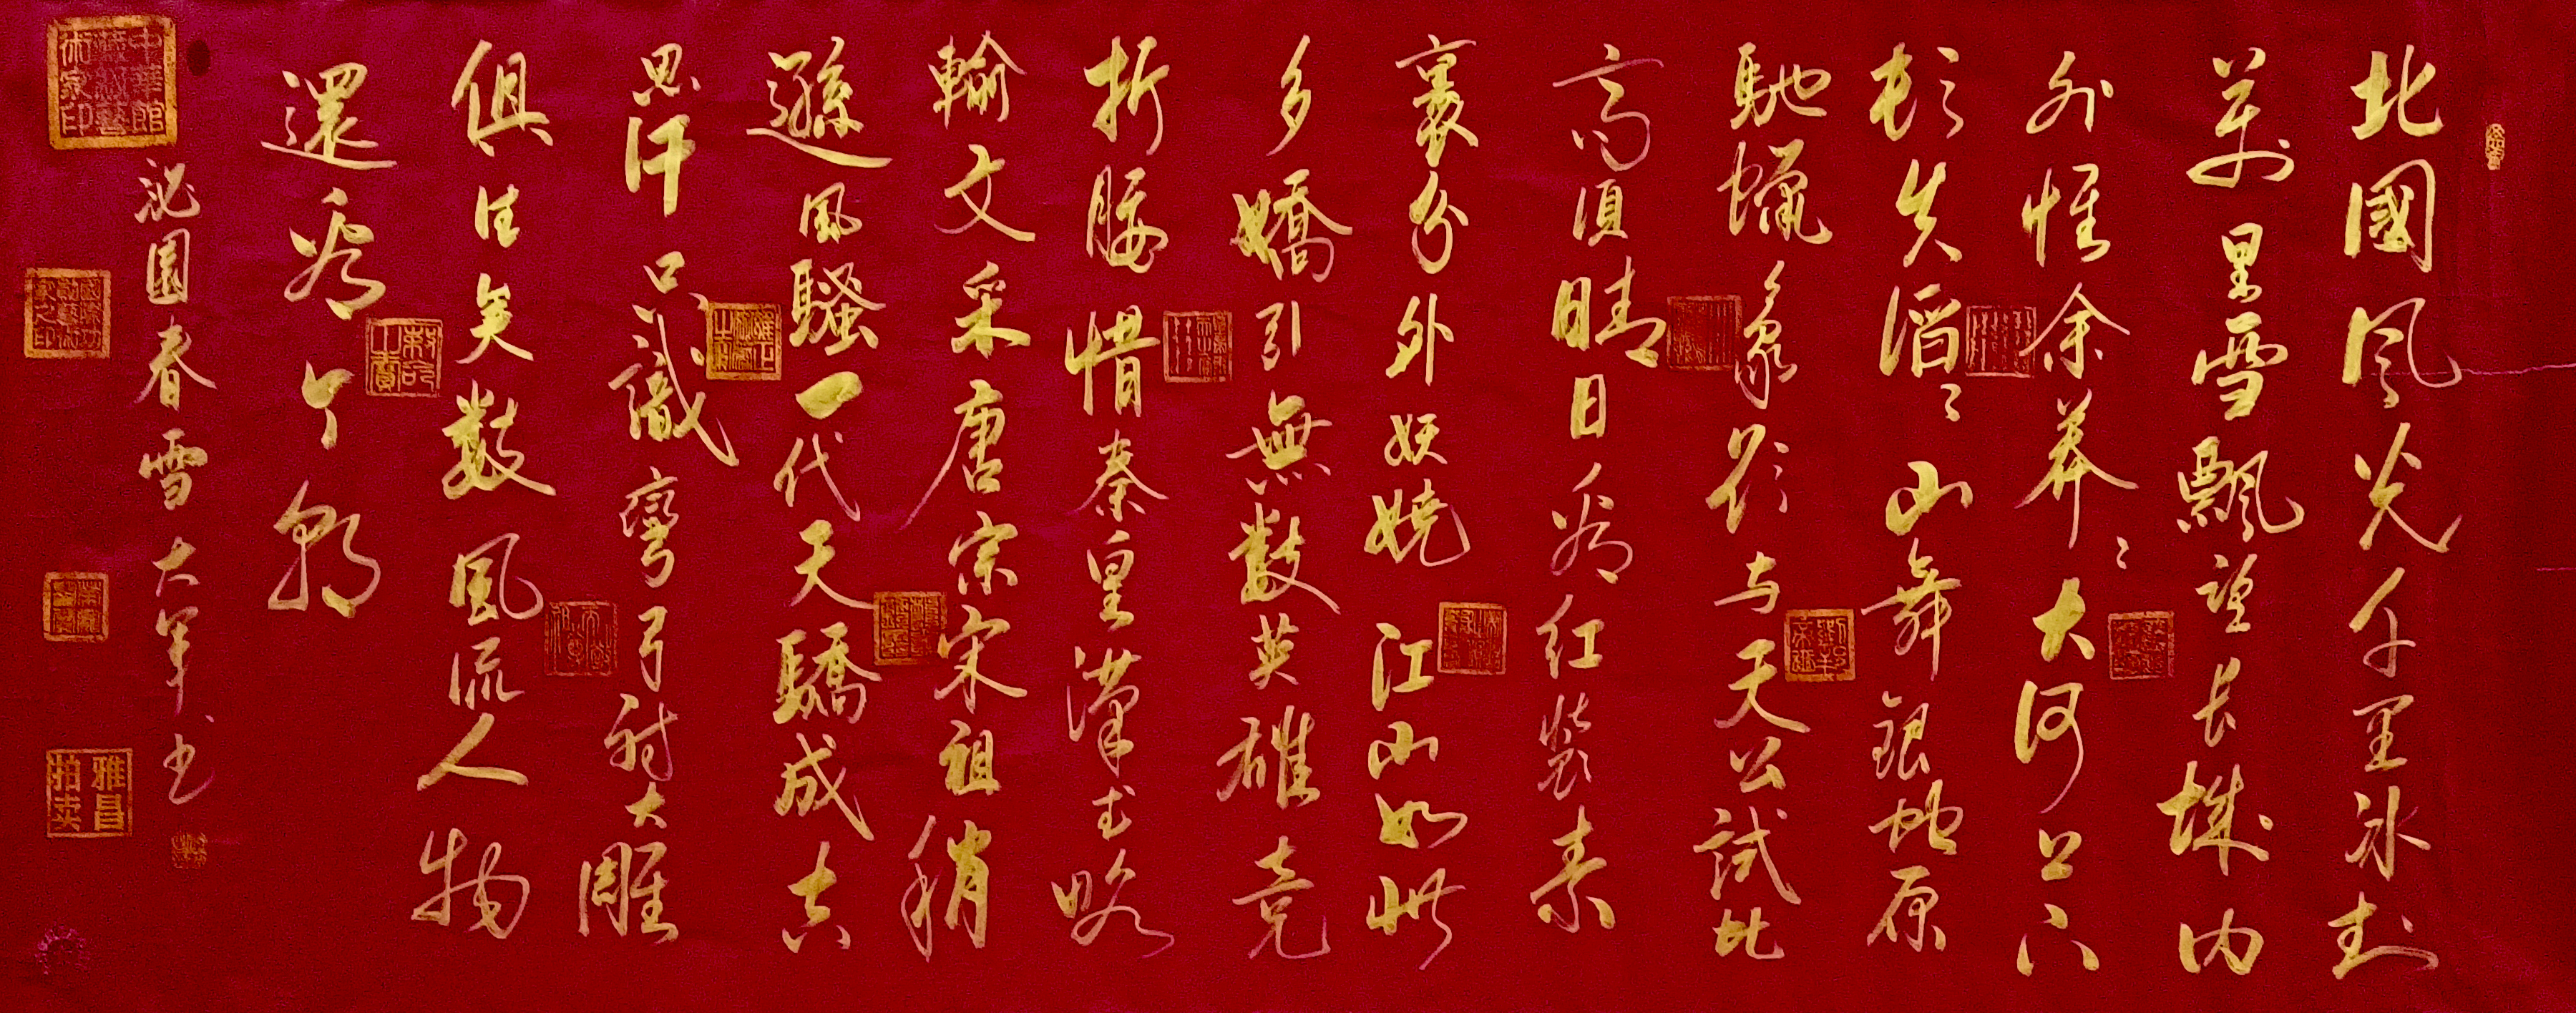 北國风光千里冰封
萬里雪飄望长城内
外惟余莽〻大河上下
頓失滔〻山舞銀蛇原
馳蠟象欲与天公試比
高須晴日看红裝素
裹分外妖娆江山如此
多嬌引無數英雄竞
折腰惜秦皇漢武略
輸文采唐宗宋祖稍
遜風騷一代天驕成吉
思汗只識彎弓射大雕
俱往矣數風流人物
還看今朝
沁園春雪大军书
中華館
藏級藝
術家印
雅昌
拍卖